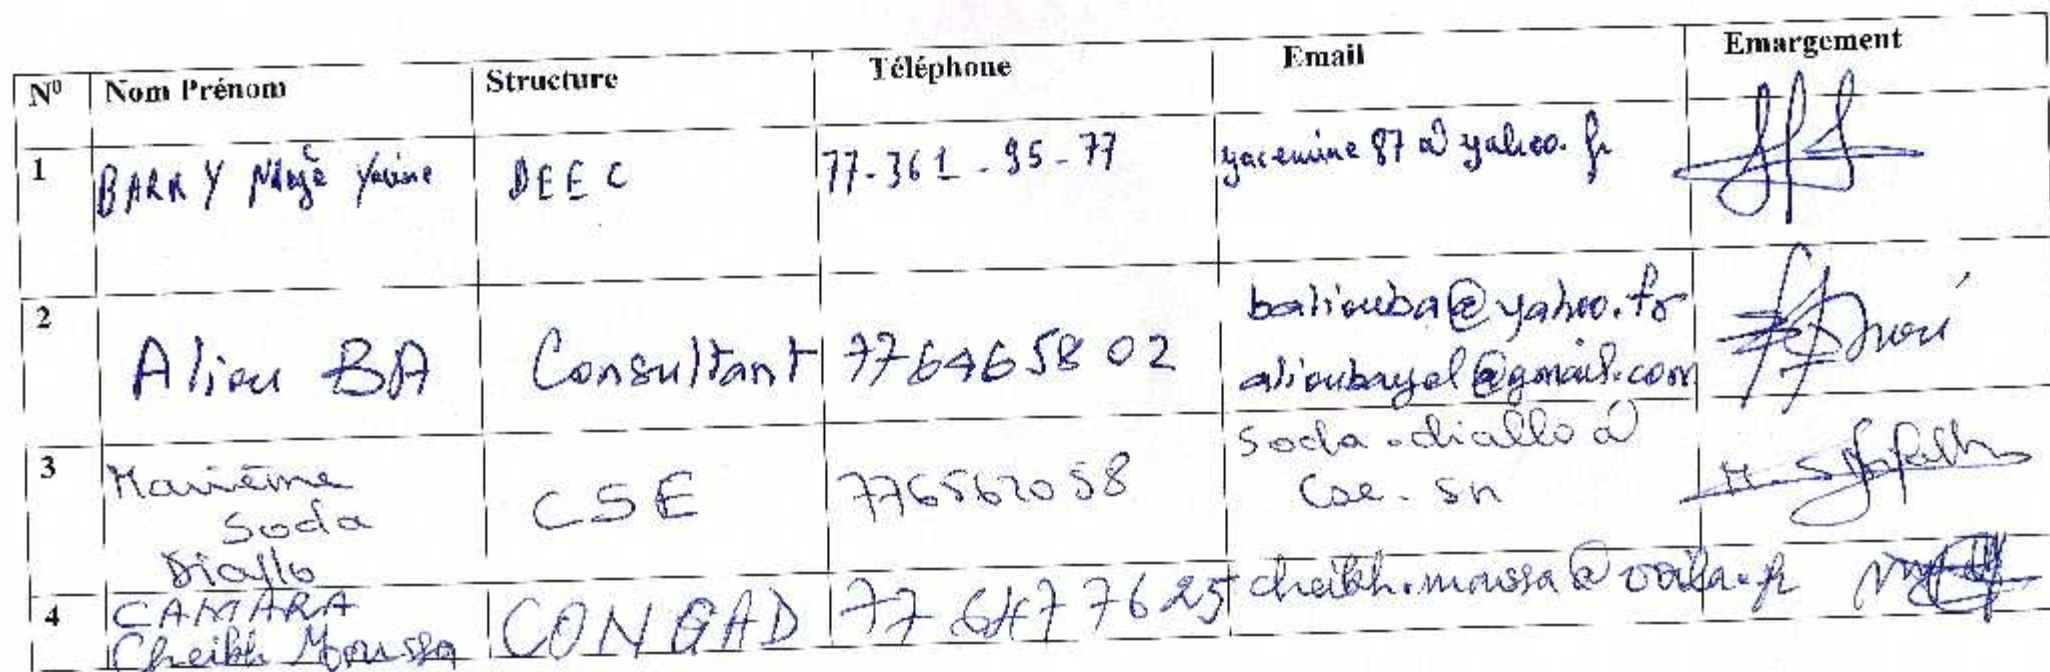 N⁰ Nom Prénom Structure Téléphone Email Emargement
1 BARRY Yacine DEEC 77-361-95-77 yacemine87@yahoo.fr
2 Aliou BA Consultant 776465802 baliouba@yahoo.fr
alioubayel@gmail.com
3 Marième CSE 776562058 soda.diallo@
Soda cse.sn
Diallo
4 CAMARA CONGAD 776477625 cheikh.moussa@voila.fr
Cheikh Moussa